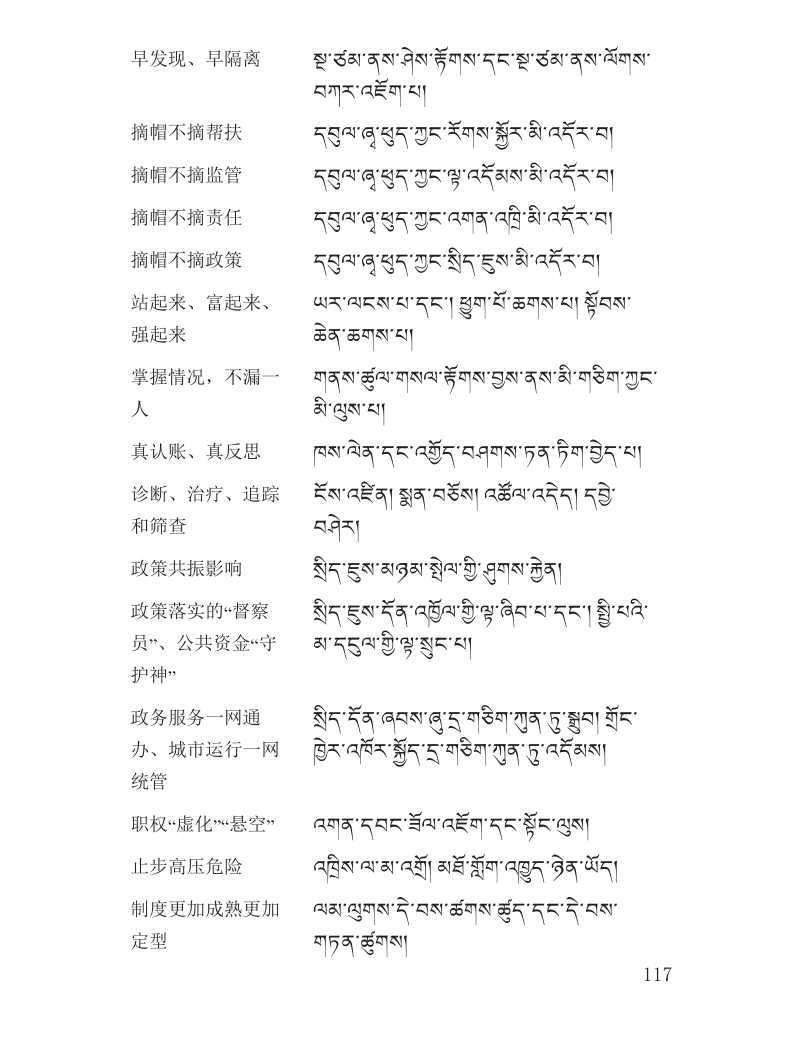 早发现、早隔离 སྔ་ཙམ་ནས་ཤེས་རྟོགས་དང་སྔ་ཙམ་ནས་ལོགས་
བཀར་འཇོག་པ།
摘帽不摘帮扶 དབུལ་ཞྭ་ཕུད་ཀྱང་རོགས་སྐྱོར་མི་འདོར་བ།
摘帽不摘监管 དབུལ་ཞྭ་ཕུད་ཀྱང་ལྟ་འདོམས་མི་འདོར་བ།
摘帽不摘责任 དབུལ་ཞྭ་ཕུད་ཀྱང་འགན་འཁྲི་མི་འདོར་བ།
摘帽不摘政策 དབུལ་ཞྭ་ཕུད་ཀྱང་སྲིད་ཇུས་མི་འདོར་བ།
站起来、富起来、 ཡར་ལངས་པ་དང་། ཕྱུག་པོ་ཆགས་པ། སྟོབས་
强起来 ཆེན་ཆགས་པ།
掌握情况，不漏一 གནས་ཚུལ་གསལ་རྟོགས་བྱས་ནས་མི་གཅིག་ཀྱང་
人 མི་ལུས་པ།
真认账、真反思 ཁས་ལེན་དང་འགྱོད་བཤགས་ཏན་ཏིག་བྱེད་པ།
诊断、治疗、追踪 ངོས་འཛིན། སྨན་བཅོས། འཚོལ་འདེད། དབྱེ་
和筛查 བཤེར།
政策共振影响 སྲིད་ཇུས་མཉམ་སྤེལ་གྱི་ཤུགས་རྐྱེན།
政策落实的“督察 སྲིད་ཇུས་དོན་འཁྱོལ་གྱི་ལྟ་ཞིབ་པ་དང་། སྤྱི་པའི་
员”、公共资金“守 མ་དངུལ་གྱི་ལྟ་སྲུང་པ།
护神”
政务服务一网通 སྲིད་དོན་ཞབས་ཞུ་དྲ་གཅིག་ཀུན་ཏུ་སྒྲུབ། གྲོང་
办、城市运行一网 ཁྱེར་འཁོར་སྐྱོད་དྲ་གཅིག་ཀུན་ཏུ་འདོམས།
统管
职权“虚化”“悬空” འགན་དབང་ཟོལ་འཇོག་དང་སྟོང་ལུས།
止步高压危险 འཁྲིས་ལ་མ་འགྲོ། མཐོ་གློག་འཁྱུད་ཉེན་ཡོད།
制度更加成熟更加 ལམ་ལུགས་དེ་བས་ཚགས་ཚུད་དང་དེ་བས་
定型 གཏན་ཚུགས།
117